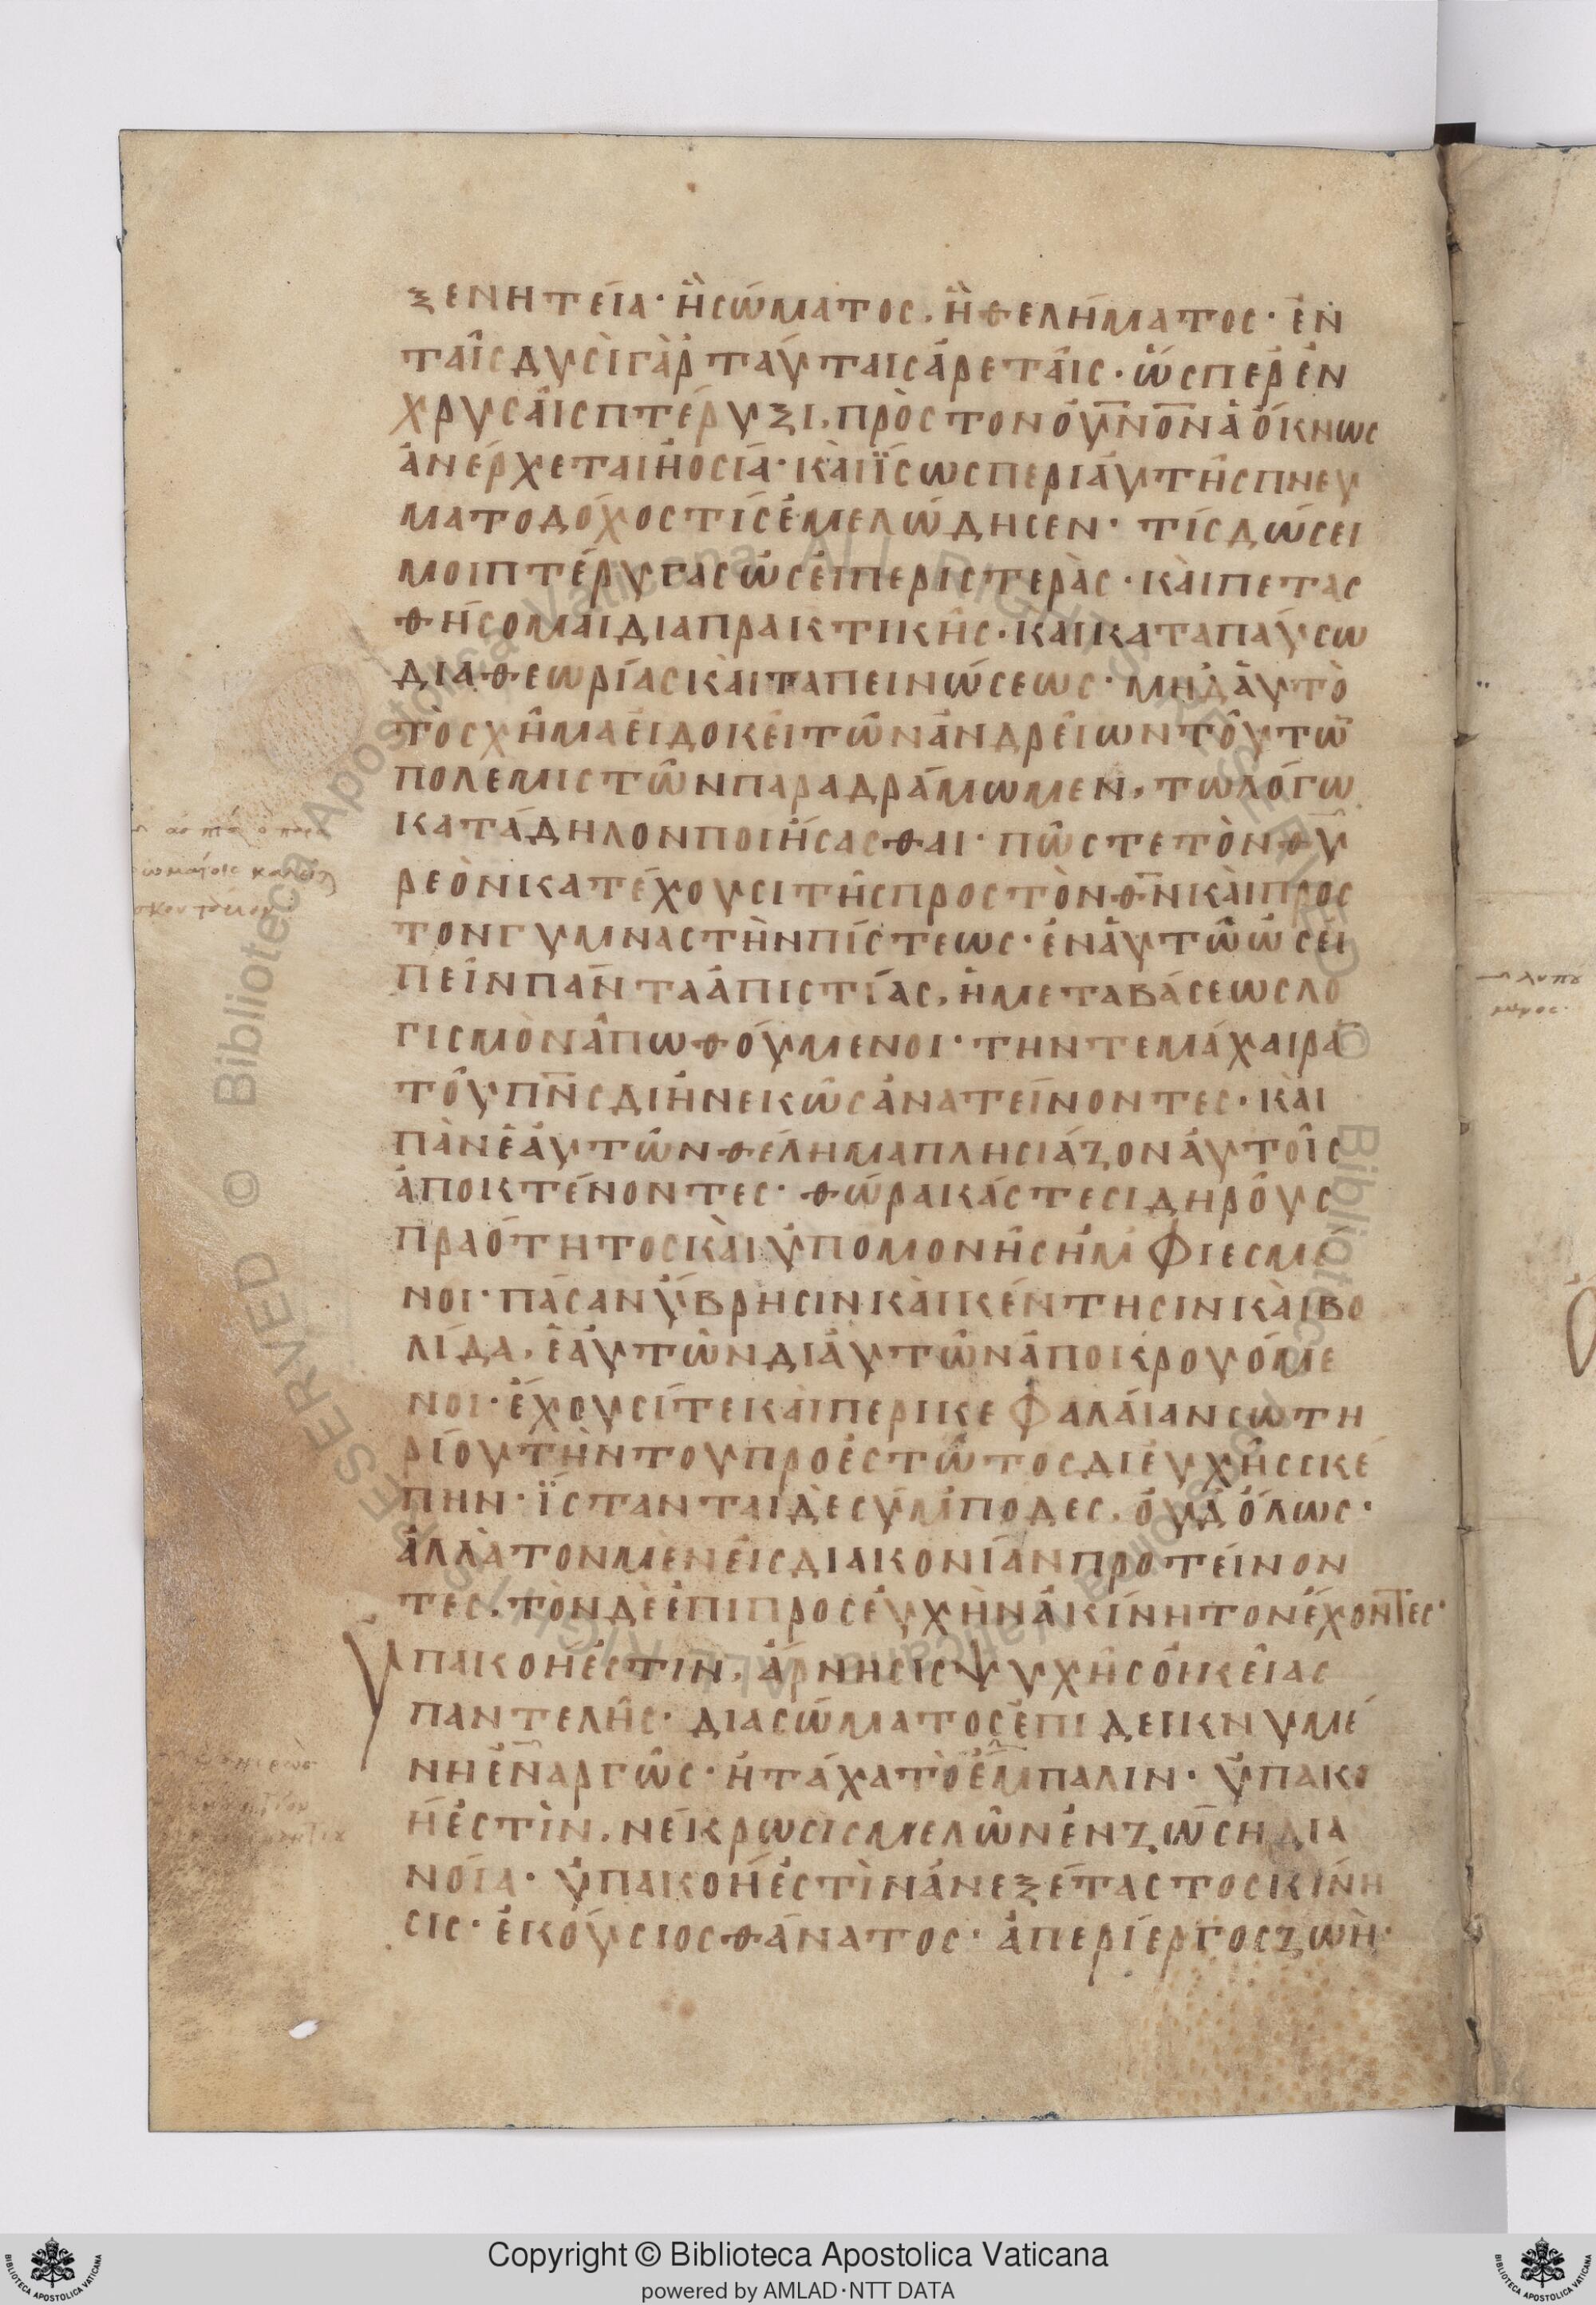 ξενητεία· ἢ σώματος, ἢ θελήματος· ἐν
ταῖς δυσὶ γὰρ ταύταις ἀρεταῖς· ὥσπερ ἐν
χρυσαῖς πτέρυξι, πρὸς τὸν οὐν̅ο̅ν ἀόκνως
ἀνέρχεται ἡ ὁσία· καὶ ἴσως περὶ αὐτῆς πνευ
ματοδόχος τίς ἐμελώδησεν· τίς δώσει
μοι πτέρυγας ὡσεὶ περιστερὰς· καὶ πετας
θήσομαι διαπρακτικῆς· καὶ καταπαύσω
διαθεωρίας καὶ ταπεινώσεως· μηδ αὐτὸ
τὸ σχῆμα εἰ δοκεῖ τῶν ἀνδρείων τούτω̅
πολεμιστῶν παραδράμωμεν, τῶ λόγω
κατάδηλον ποιήσασθαι· πῶς τε τὸν θυ
ρεὸν κατέχουσι τῆς προς τὸν θ̅ν̅ καὶ προς
τον γυμναστὴν πίστεως· ἐν αὐτῶ ὡς εἰ
πεῖν πάντα ἀπιστίας, ἢ μεταβάσεως λο
γισμὸν ἀπωθούμενοι· την τε μάχαιρα̅
τοῦ π̅ν̅ς διηνεκῶς ἀνατείνοντες· καὶ
πὰν ἑαυτῶν θέλημα πλησιάζον αὐτοῖς
ἀποκτένοντες· θώρακάς τε σιδηροῦς
πραότητος καὶ ὑπομονῆς ἠμφιεσμέ
νοι· πάσαν ὕβρησιν καὶ κέντησιν καὶ βο
λίδα, ἑαυτῶν δι αὐτῶν ἀποκρουόμε
νοι· ἔχουσί τε καὶ περικεφαλαίαν σωτη
ρίου τὴν του προεστῶτος δι εὐχῆς σκέ
πην· ἵστανται δὲ σύμποδες, οὐδ ὅλως·
ἀλλὰ τον μὲν εἰς διακονίαν προτείνον
τες, τὸν δὲ ἐπι προσευχὴν ἀκίνητον ἔχοντες·
Ὑπακοή ἐστιν, ἄρνησις ψυχῆς οἰκείας
παντελῆς· δια σώματος ἐπιδεικνυμέ
νη ἐναργῶς· ἢ τάχα τὸ ἔμπαλιν· ὑπακο
ή ἐστὶν, νέκρωσις μελῶν ἐν ζώσῃ δια
νοία· ὑπακοή ἐστὶν ἀνεξέταστος κίνη
σις· ἑκούσιος θάνατος· ἀπερίεργος ζωὴ·
Copyright © Biblioteca Apostolica Vaticana
powered by AMLAD·NTT DATA